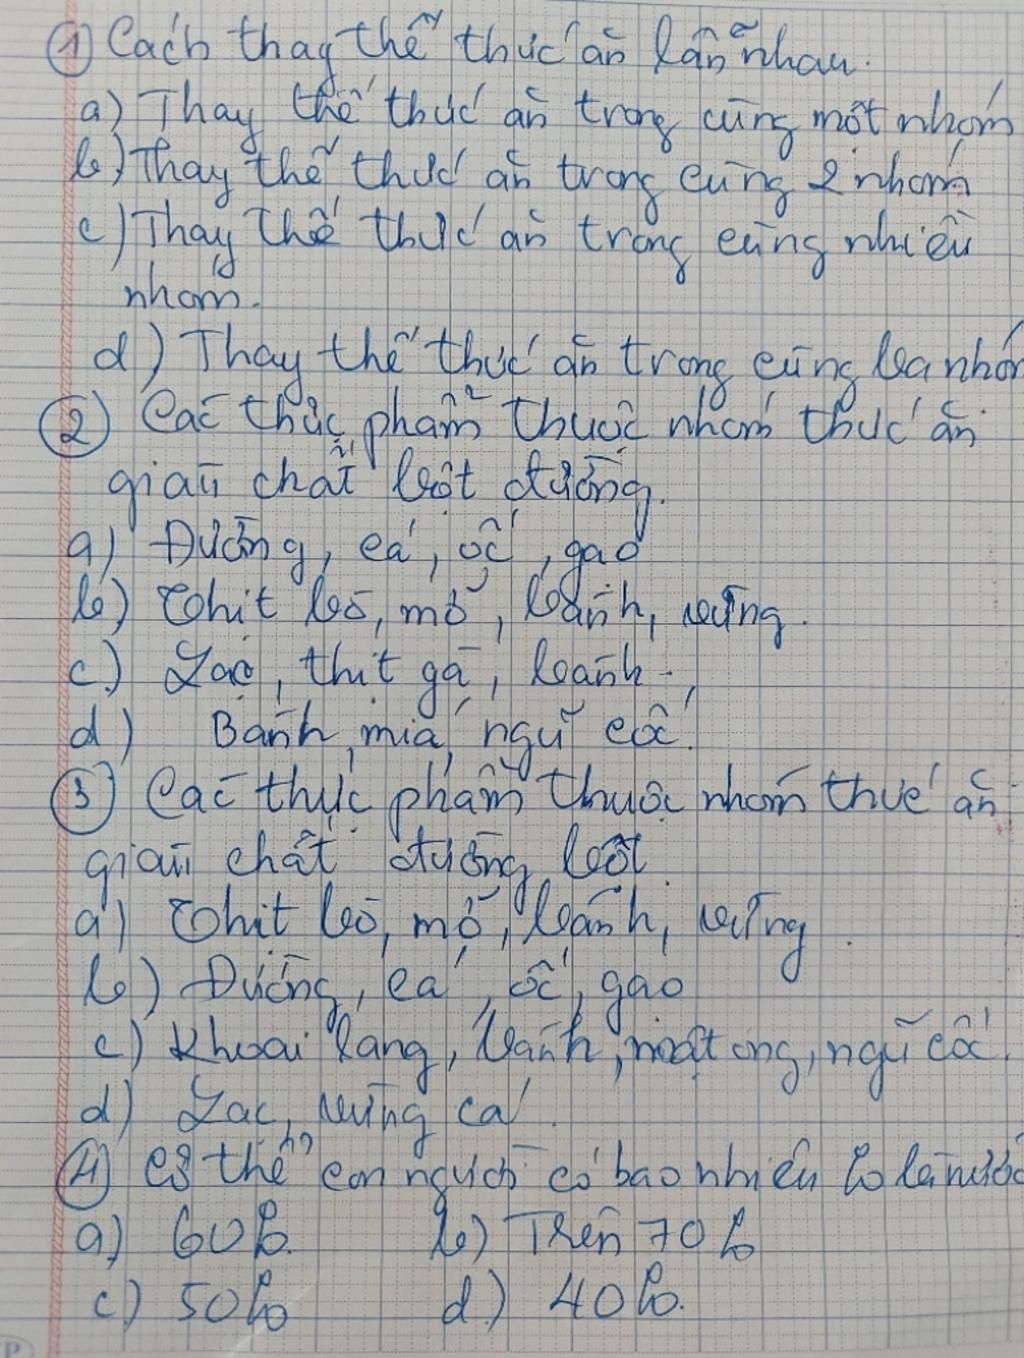 ① Cách thay thế thức ăn lẫn nhau.
a) Thay thế thức ăn trong cùng một nhóm
b) Thay thế thức ăn trong cùng 2 nhóm
c) Thay thế thức ăn trong cùng nhiều
nhóm.
d) Thay thế thức ăn trong cùng ba nhóm
② Các thực phẩm thuộc nhóm thức ăn
giàu chất bột đường.
a) Đường, cá, ốc, gạo
b) Thit bò, mỡ, bánh, vừng.
c) Lạc, thịt gà, bánh.
d) Bánh, mía, ngũ cốc.
③ Các thực phẩm thuộc nhóm thức ăn
giàu chất đường bột.
a) Thit bò, mỡ, bánh, vừng.
b) Đường, cá, ốc, gạo
c) Khoai lang, bánh, mật ong, ngũ cốc.
d) Lac, vừng cá.
④ Cơ thể con người có bao nhiêu % là nước
a) 60%. b) Trên 70%
c) 50% d) 40%.